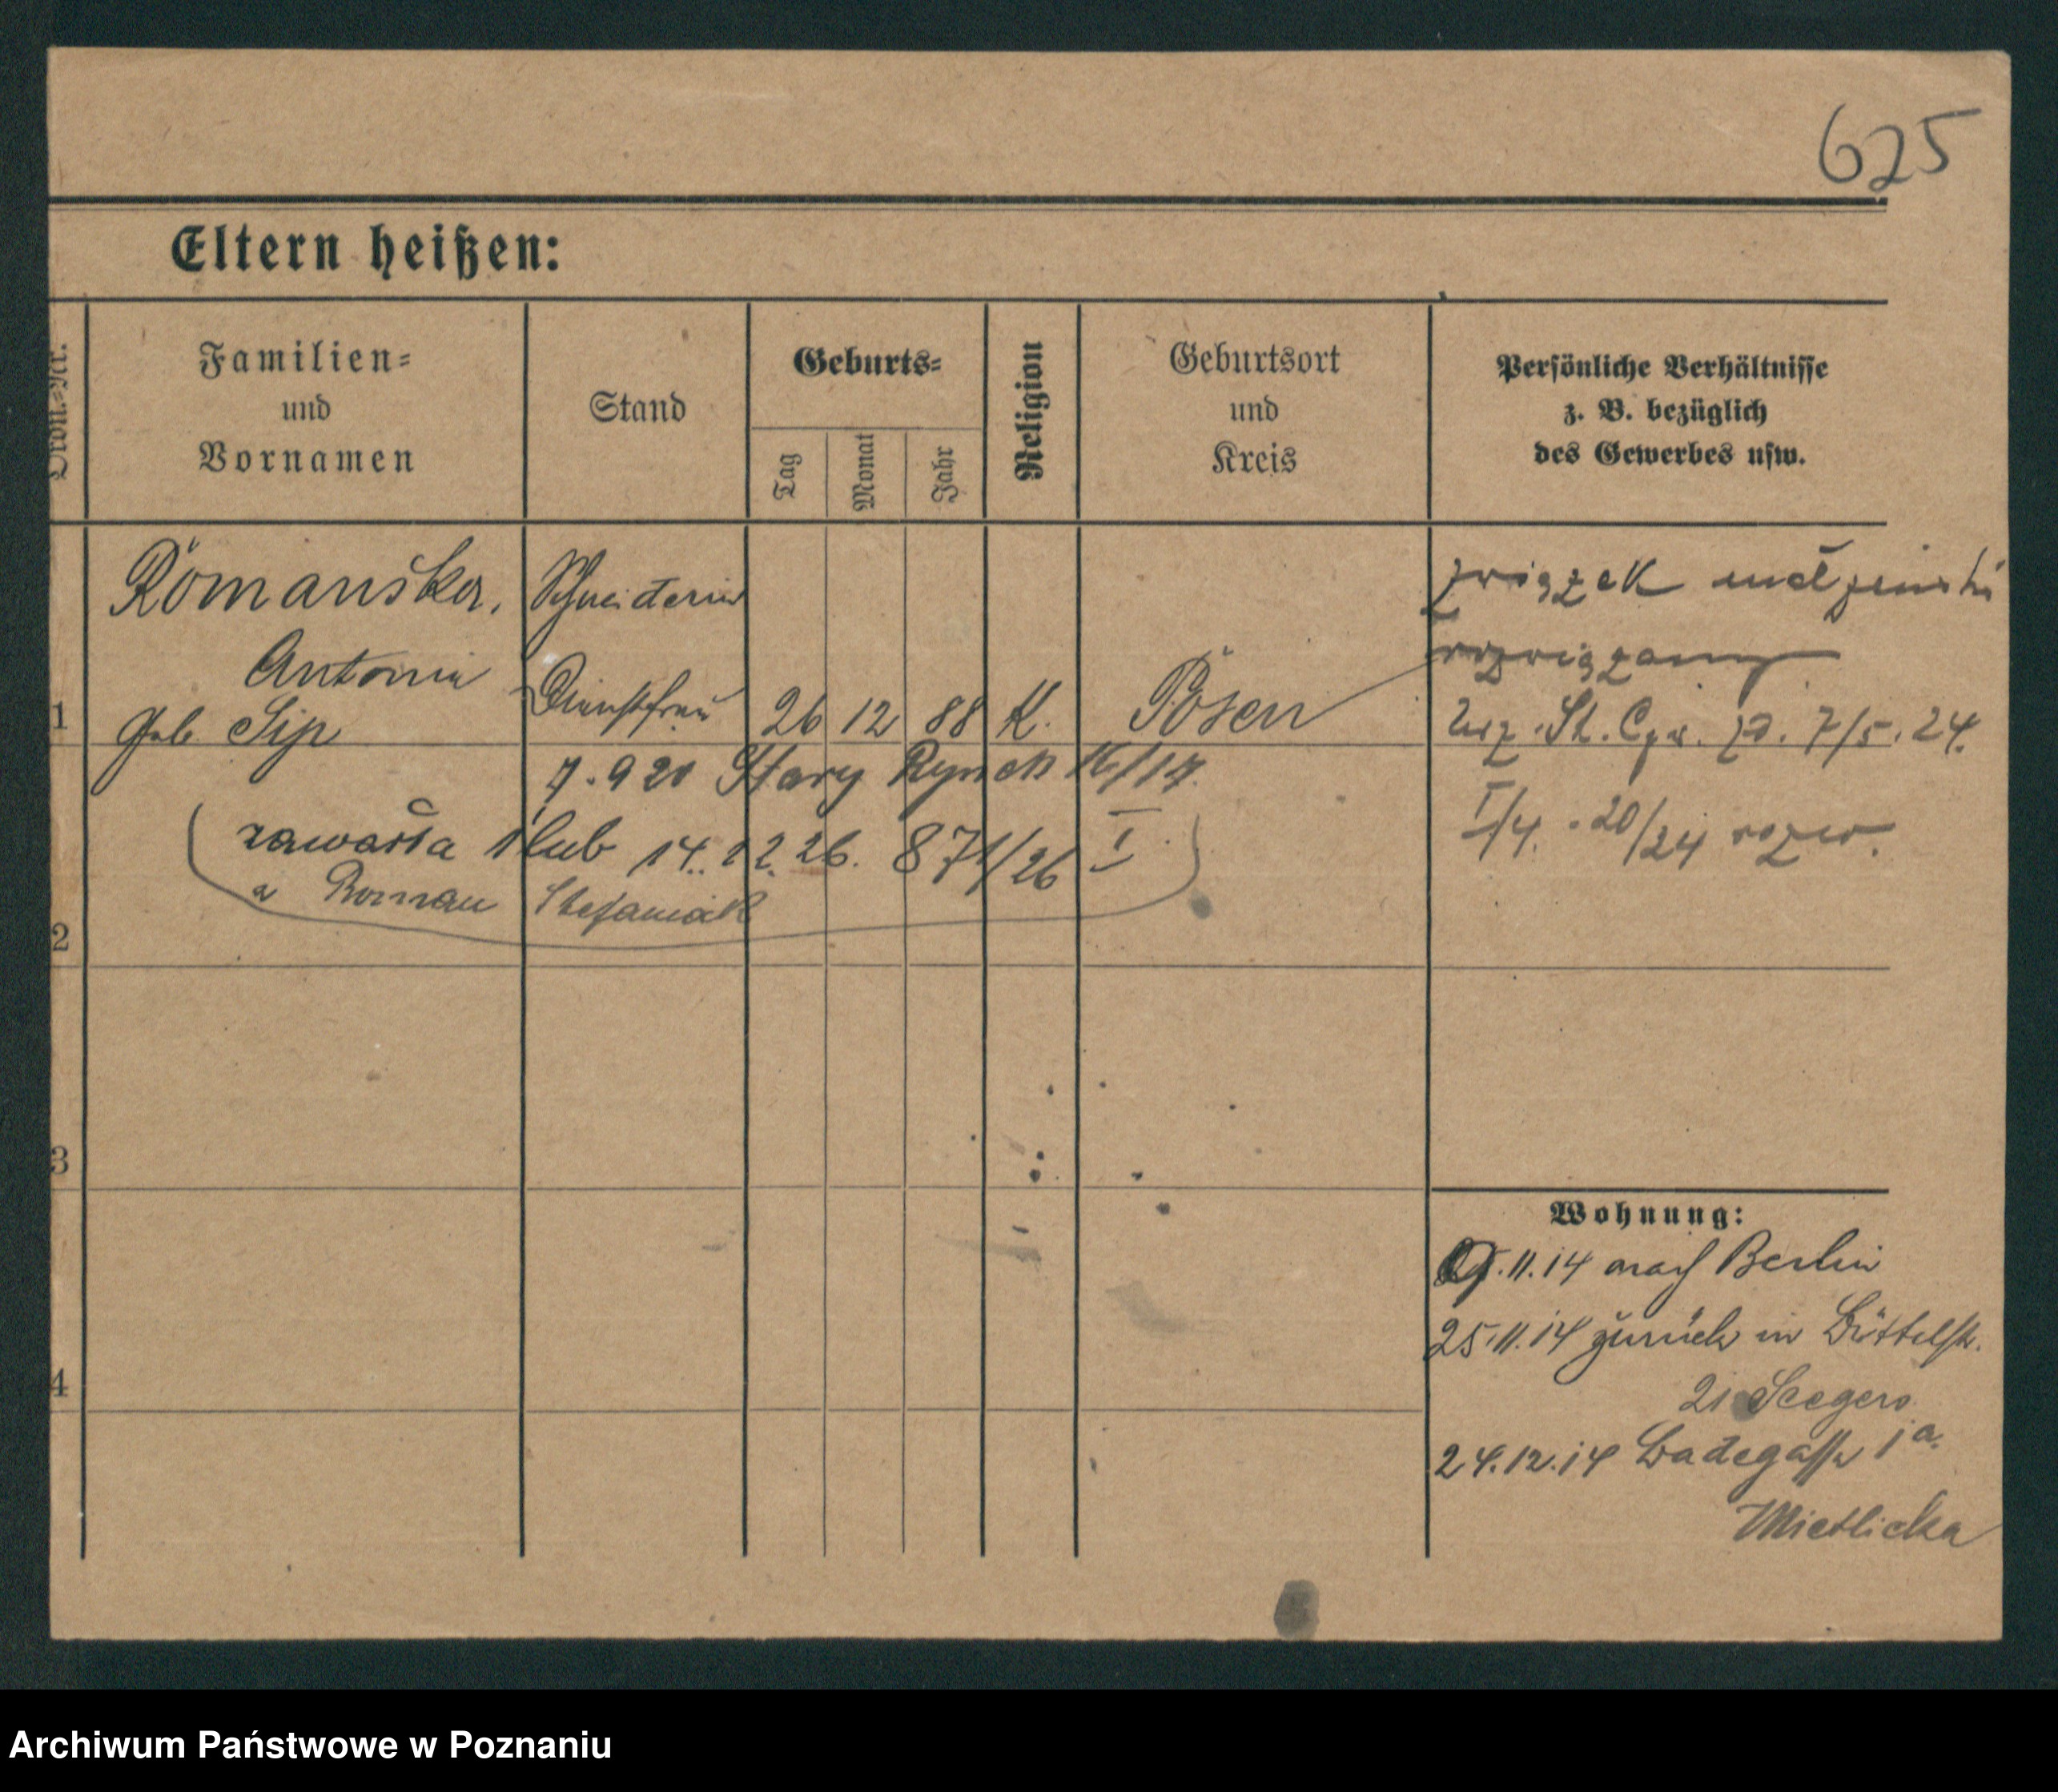 625
Eltern heißen:
Ordn.-Nr.
Familien-
und
Vornamen
Stand
Geburts-
Tag
Monat
Jahr
Religion
Geburtsort
und
Kreis
Persönliche Verhältnisse
z. B. bezüglich
des Gewerbes usw.
1
Romanska,
Antonia
geb. Sip
Schneiderin
Dienstfrau
26 12 88 K. Posen
7.920 Stary Rynek 16/17.
zawarła ślub 14.12.26. 871/26 I
z Roman Stefaniak
związek małżeński
rozwiązany
Urz. St. Cyw. 7/5.24.
I/4. 20/24 rozw.
2
3
4
Wohnung:
.11.14 nach Berlin
25.11.14 zurück in Büttelstr.
21 Seegers
24.12.14 Badegasse 1a.
Mietlicka
Archiwum Państwowe w Poznaniu